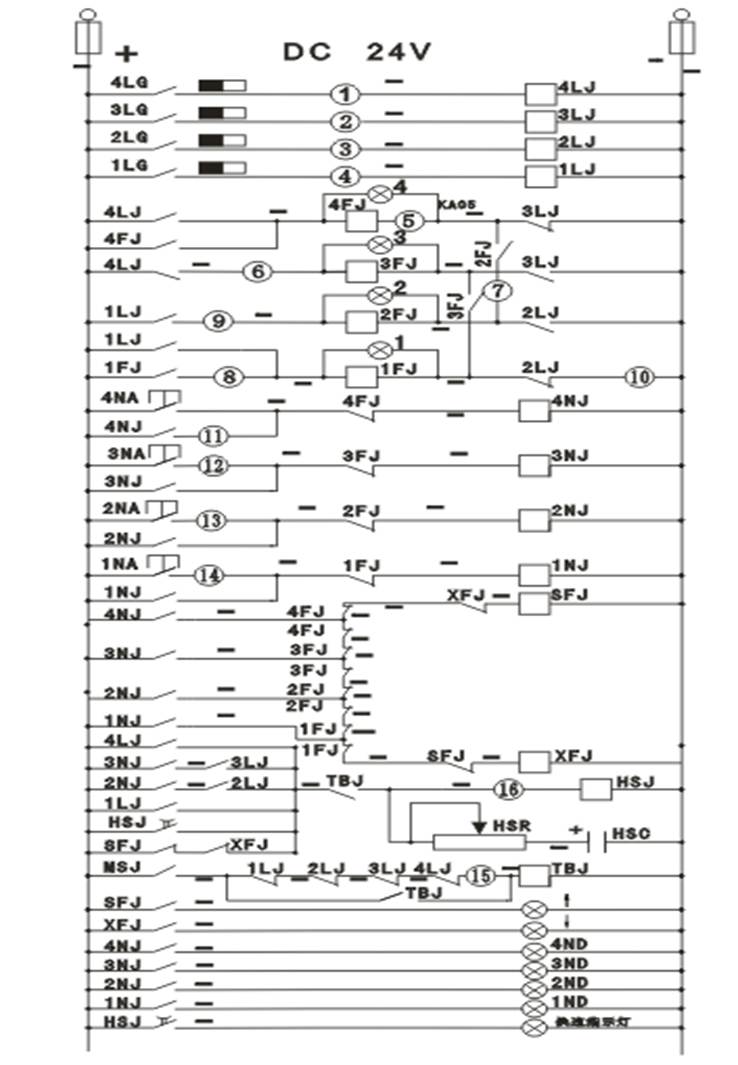 + DC 24V −
4LG 1 4LJ
3LG 2 3LJ
2LG 3 2LJ
1LG 4 1LJ
4
4LJ 4FJ 5 KA05 3LJ
4FJ 2FJ
3
4LJ 6 3FJ 3LJ
7
2
1LJ 9 2FJ 3FJ 2LJ
1LJ 1
1FJ 8 1FJ 2LJ 10
4NA 4FJ 4NJ
4NJ 11
3NA 12 3FJ 3NJ
3NJ
2NA 13 2FJ 2NJ
2NJ
1NA 14 1FJ 1NJ
1NJ XFJ SFJ
4NJ 4FJ
4FJ
3NJ 3FJ
3FJ
2NJ 2FJ
2FJ
1NJ 1FJ
4LJ 1FJ
3NJ 3LJ SFJ XFJ
2NJ 2LJ TBJ 16 HSJ
1LJ
HSJ HSR + HSC
SFJ XFJ
MSJ 1LJ 2LJ 3LJ 4LJ 15 TBJ
TBJ
SFJ ↑
XFJ ↓
4NJ 4ND
3NJ 3ND
2NJ 2ND
1NJ 1ND
HSJ 快速指示灯